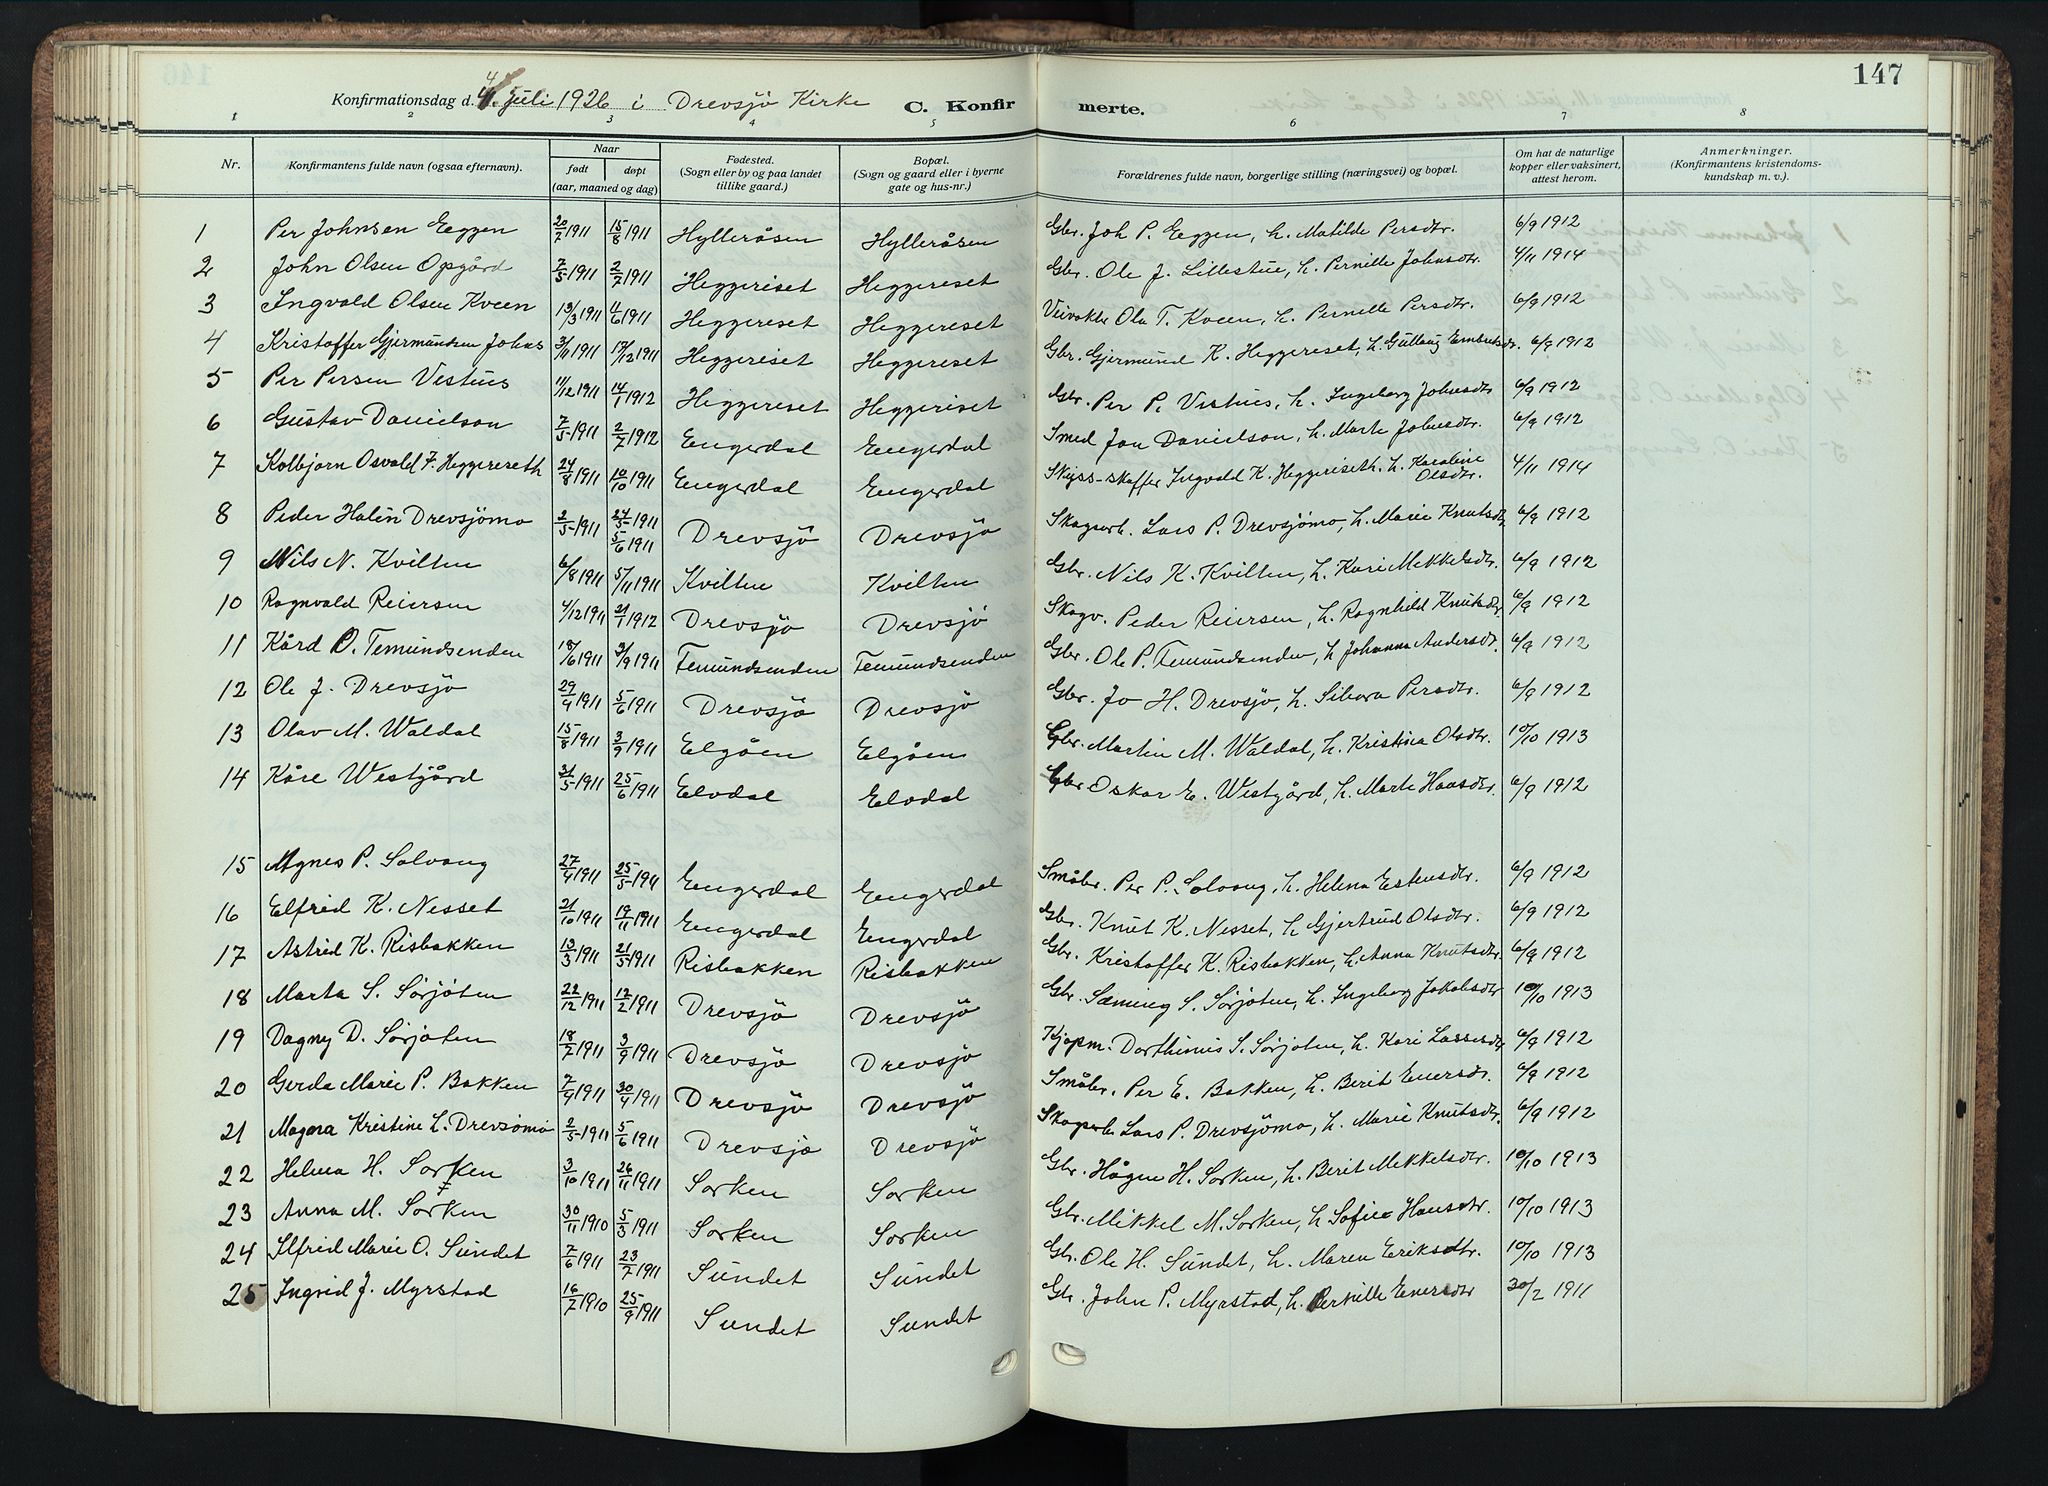 147
Konfirmationsdag d. 4. Juli 1926 i Drevsjö Kirke C. Konfirmerte.
1 2 3 4 5 6 7 8
Nr. Konfirmantens fulde navn (ogsaa efternavn). Naar født døpt (aar, maaned og dag) Fødested. (Sogn eller by og paa landet tillike gaard.) Bopæl. (Sogn og gaard eller i byerne gate og hus-nr.) Forældrenes fulde navn, borgerlige stilling (næringsvei) og bopæl. Om hat de naturlige kopper eller vaksinert, attest herom. Anmerkninger. (Konfirmantens kristendomskundskap m. v.).
1 Per Johnsen Eggen 20/7 1911 15/8 1911 Hylleråsen Hylleråsen Gbr. Joh P. Eggen, h. Matilde Persdtr. 6/9 1912
2 John Olsen Opgård 7/5 1911 2/7 1911 Heggeriset Heggereset Gbr. Ole J. Lillestue, h. Pernille Johnsdtr. 4/11 1914
3 Ingvald Olsen Kveen 13/3 1911 4/6 1911 Heggereset Heggereset Veivokter Ola T. Kveen, h. Pernille Persdtr. 6/9 1912
4 Kristoffer Gjermundsen Johns 3/11 1911 17/12 1911 Heggeriset Heggereset Gbr. Gjermund K. Heggereset, h. Gullaug Embretsdr. 6/9 1912
5 Per Persen Vestues 11/12 1911 14/1 1912 Heggereset Heggeriset Gbr. Per P. Vestues, h. Ingeborg Johnsdtr 6/9 1912
6 Gustav Danielson 7/5 1911 2/7 1912 Engerdal Engerdal Smed Jon Danielson, h. Marte Johnsdtr. 6/9 1912
7 Kolbjørn Osvald F. Heggereseth 24/8 1911 10/10 1911 Engerdal Engerdal Skyss-skaffer Ingvald K. Heggeriseth. h. Karoline Olsdtr. 4/11 1914
8 Peder Halin Drevsjömo 2/5 1911 24/5 1911 5/6 1911 Drevsjö Drevsjö Skogsarb. Lars P. Drevsjömo, h. Marie Knutsdtr 6/9 1912
9 Nils N. Kvilten 6/8 1911 5/11 1911 Kvilten Kvilten Gbr. Nils K. Kvilten, h. Kari Mekkelsdtr. 6/9 1912
10 Ragnvald Reiersen 4/12 1911 21/1 1912 Drevsjö Drevsjö Skogv. Peder Reiersen, h. Ragnhild Knutsdtr 6/9 1912
11 Kård O. Femundsenden 18/6 1911 3/9 1911 Femundsenden Femundsenden Gbr. Ole P. Femundsenden, h Johanna Andersdtr. 6/9 1912
12 Ole J. Drevsjö 29/4 1911 5/6 1911 Drevsjö Drevsjö Gbr. Jo H. Drevsjö, h. Persdtr. 6/9 1912
13 Olav M. Waldal 15/8 1911 3/9 1911 Elgåen Elgåen Gbr. Martin M. Waldal, h. Kristina Olsdtr. 10/10 1913
14 Kåre Westgård 31/5 1911 25/6 1911 Elvdal Elvdal Gbr Oskar E. Westgård, h. Marte Hansdtr. 6/9 1912
15 Agnes P. Solvang 27/4 1911 25/5 1911 Engerdal Engerdal Småbr. Per P. Solvang, h. Helena Estensdtr. 6/9 1912
16 Elfrid K. Nesset 21/10 1911 19/11 1911 Engerdal Engerdal Gbr. Knut K. Nesset, h Gjertrud Olsdtr. 6/9 1912
17 Astrid K. Risbakken 13/3 1911 21/5 1911 Risbakken Risbakken Gbr. Kristoffer K. Risbakken, h. Anna Knutsdtr 6/9 1912
18 Marta S. Sørjøten 22/12 1911 12/2 1911 Drevsjö Drevsjö Gbr. Sæming S. Sørjøten, h. Ingeborg Jakobsdtr 10/10 1913
19 Dagny D. Sørjøten 18/7 1911 3/9 1911 Drevsjö Drevsjö Kjøpm. Dorthinus S. Sørjøten, h. Kari Larsesdtr 6/9 1912
20 Gerda Marie P. Bakken 7/4 1911 30/4 1911 Drevsjö Drevsjö Småbr. Per E. Bakken, h. Berit Enersdr. 6/9 1912
21 Magna Kristine L. Drevsømo 2/5 1911 5/6 1911 Drevsjö Drevsjö Skogsarb. Lars P. Drevsjömo, h. Marie Knutsdtr. 6/9 1912
22 Helma H. Sorken 3/10 1911 26/11 1911 Sorken Sorken Gbr. Høgne H. Sorken, h. Berit Mekkelsdtr. 10/10 1913
23 Anna M. Sorken 30/11 1910 5/3 1911 Sorken Sorken Gbr. Mikkel M. Sorken, h Sofie Hansdtr. 10/10 1913
24 Alfrid Marie O. Sundet 7/6 1911 23/7 1911 Sundet Sundet Gbr. Ole H. Sundet, h. Maren Eriksdtr. 10/10 1913
25 Ingrid J. Myrstad 16/7 1910 25/9 1911 Sundet Sundet Gbr. John P. Myrstad, h. Pernille Enersdtr 30/2 1911